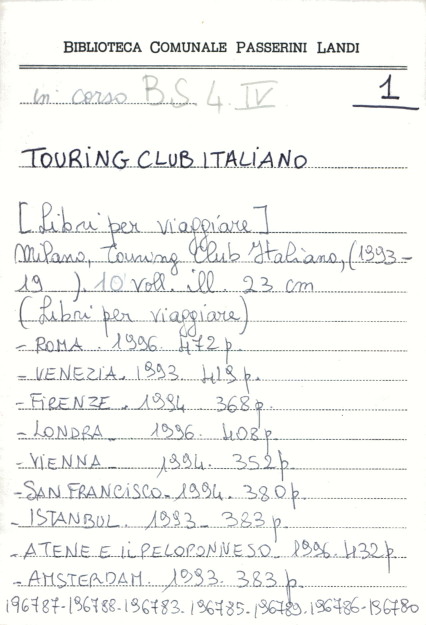 BIBLIOTECA COMUNALE PASSERINI LANDI
in corso B.S. 4. IV
1
TOURING CLUB ITALIANO
[Libri per viaggiare]
Milano, Touring Club Italiano, (1993-
19  ). 10 voll. ill. 23 cm
(Libri per viaggiare)
- ROMA. 1996. 472 p.
- VENEZIA. 1993. 419 p.
- FIRENZE. 1994 368 p.
- LONDRA 1996. 408 p.
- VIENNA 1994. 352 p.
- SAN FRANCISCO. 1994. 380 p.
- ISTANBUL. 1993. 383 p.
- ATENE E IL PELOPONNESO 1996. 432 p
- AMSTERDAM. 1993. 383 p.
196787-196788-196783. 196785. 196789. 196786-196780